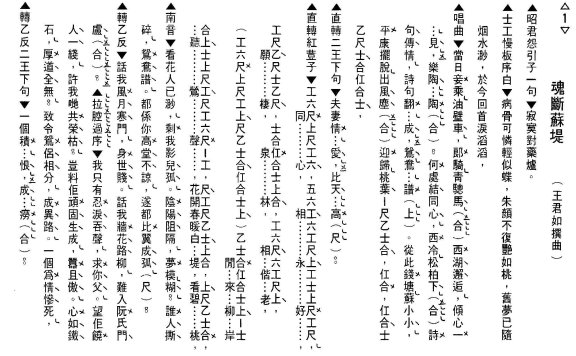 △1▽
魂斷蘇堤
（王君如撰曲）
▲昭君怨引子一句▼寂寞對藥爐。
▲士工慢板序白▼病骨可憐輕似蝶，朱顏不復艷如桃，舊夢已隨
烟水渺，於今回首淚滔滔，
▲唱曲▼當日妾乘油壁車，郎騎青驄馬（合）西湖邂逅，傾心一
…見，樂陶…陶（合）。何處結同心，西冷松柏下（合）詩
句傳情，詩句翻…成，鴛鴦…譜（上）。從此錢塘蘇小小，
平康擺脫出風塵（合）迎歸桃葉ー尺乙士合，仜合，仜合士
乙尺士合仜士合，
▲直轉二王下句▼夫妻情…愛，比天…高（尺）。
▲直轉紅荳子▼工六尺上尺工六，五六工六工尺上工士上尺工尺，
同………心，相………永………好……，
工尺乙尺士乙尺，士合仜合士上合，工六尺工六尺上，
願………棲，泉………林，相…偕…老，
（工六尺上尺工上尺乙士合仜合士上）乙士合仜合士上合ー士
閒…來…柳…岸
合上士上尺工尺工六尺ー工，尺工尺乙士上合，上尺乙士合，
…聽………鶯………聲……，花開春暖白…堤，看碧……桃，
▲南音▼看花人已渺，剩我影兒孤。陰陽阻隔，夢模糊。誰人撕
碎，鴛鴦譜。都係你高堂不諒，遂都比翼成孤（尺）。
▲轉乙反▼話我風月寒門，身世賤。話我牆花路柳，難入阮氏門
廬（合）。▲拉腔過序▼我只有忍淚吞聲，求你父。望佢饒
人一綫，許我哋共榮枯。豈料佢頑固生成，囂且傲。心如鐵
石，厚道全無。致令鴛侶相分，成異路。一個爲情慘死，
▲轉乙反二王下句▼一個積…恨，成…癆（合）。